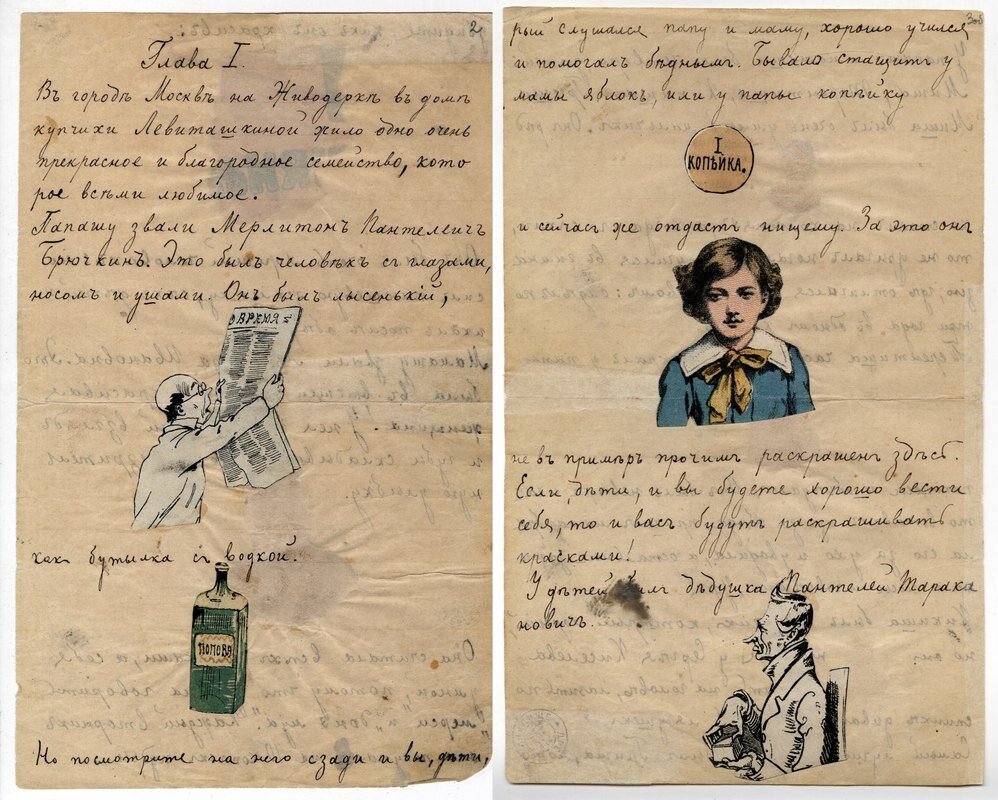 Глава I.
Въ городѣ Москвѣ на Живодеркѣ въ домѣ
купчихи Левиташкиной жило одно очень
прекрасное и благородное семейство, кото
рое всѣми любимое.
Папашу звали Мерлитонъ Пантелеичъ
Брючкинъ. Это былъ человѣкъ съ глазами,
носомъ и ушами. Онъ былъ лысенькій,
ВРЕМЯ
какъ бутылка съ водкой.
ПОПОВА
Но посмотрите на него сзади и вы, дѣти,
рый слушался папу и маму, хорошо учился
и помогалъ бѣднымъ. Бывало стащитъ у
мамы яблокъ, или у папы копѣйку
I
КОПѢЙКА.
и сейчасъ же отдастъ нищему. За это онъ
не въ примѣръ прочимъ раскрашенъ здѣсь.
Если, дѣти, и вы будете хорошо вести
себя, то и васъ будутъ раскрашивать
красками!
У дѣтей былъ дѣдушка Пантелей Тарака
новичъ.